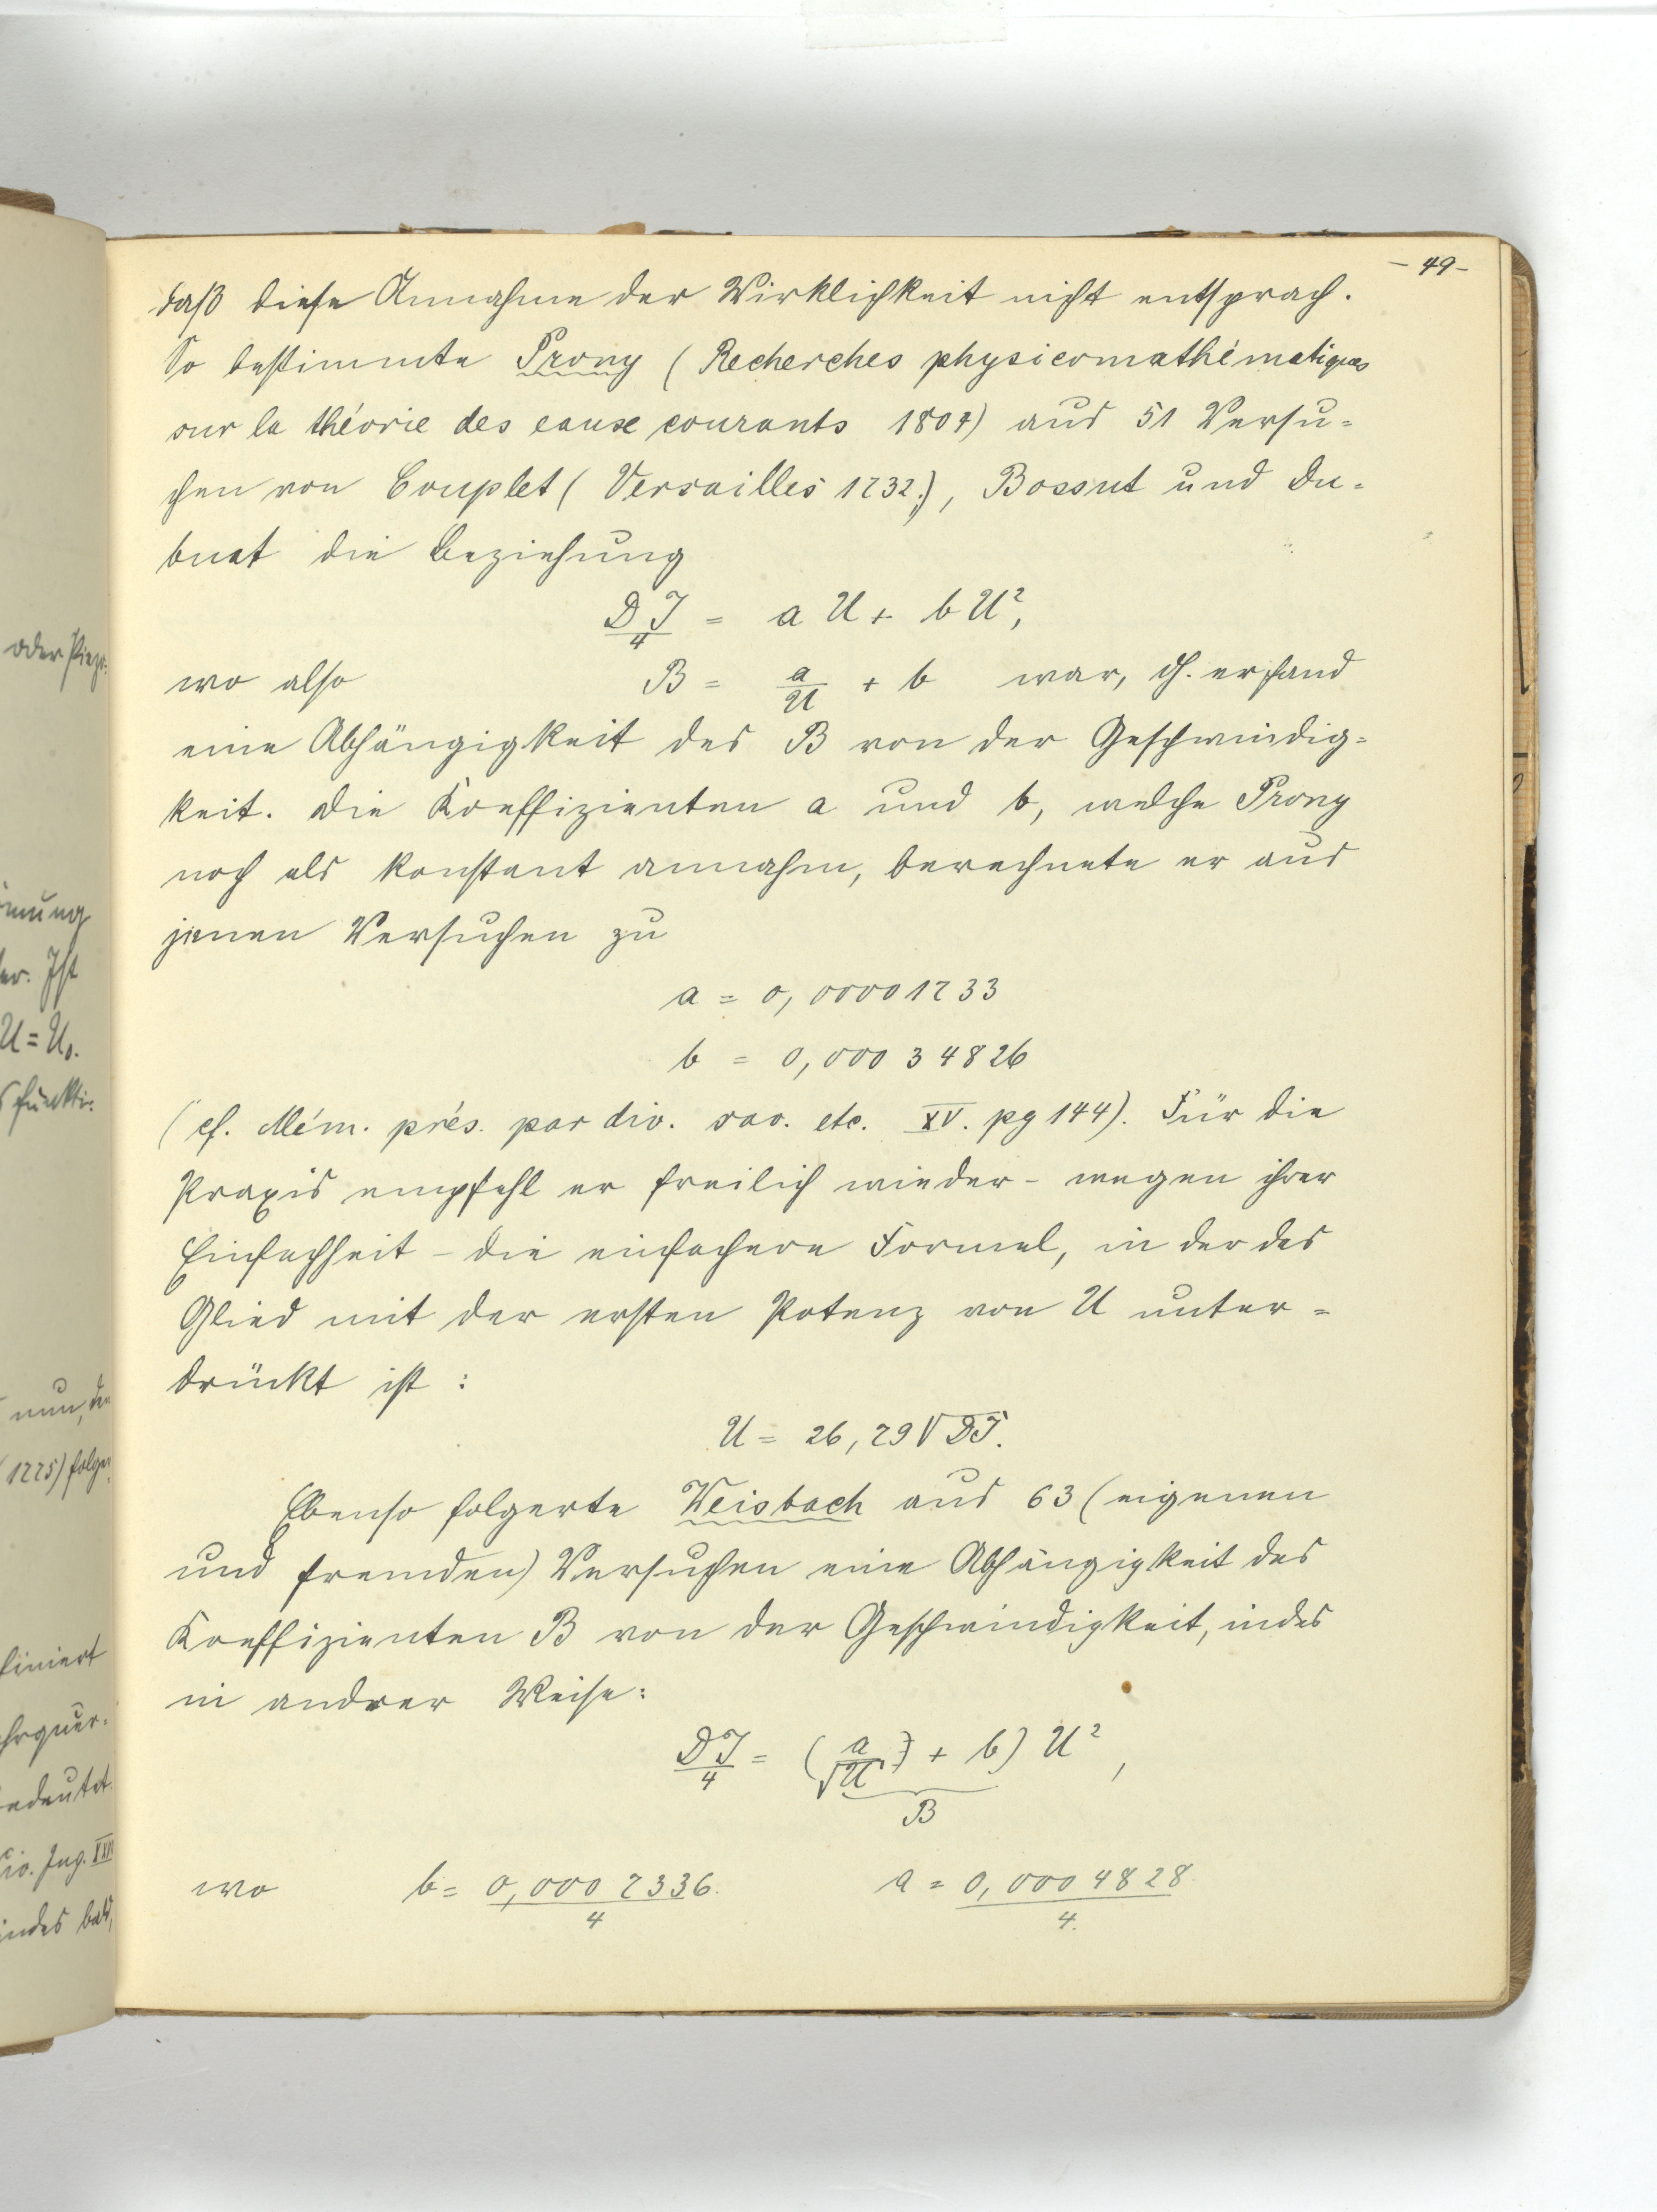 - 49 -
daß diese Annahme der Wirklichkeit nicht entsprach.
So bestimmte Prony (Recherches physicomathématiques
sur la théorie des eaux courants 1804) aus 51 Versu=
chen von Couplet (Versailles 1732), Bossut und Du=
buat die Beziehung
DJ/4 = a U + b U²,
wo also B = a/U + b war, d.h. er fand
eine Abhängigkeit des B von der Geschwindig=
keit. Die Koeffizienten a und b, welche Prony
noch als konstant annahm, berechnete er aus
jenen Versuchen zu
a = 0,00001733
b = 0,00034826
(cf. Mém. prés. par div. sav. etc. XV. pg 144). Für die
Praxis empfahl er freilich wieder - wegen ihrer
Einfachheit - die einfachere Formel, in der das
Glied mit der ersten Potenz von U unter=
drückt ist:
U = 26,79 √DJ.
Ebenso folgerte Weisbach aus 63 (eigenen
und fremden) Versuchen eine Abhängigkeit des
Koeffizienten B von der Geschwindigkeit, indes
in andrer Weise:
DJ/4 = (a/√U + b) U²,
B
wo b = 0,0007336/4 a = 0,0004828/4
oder Piezo=
U = U₀.
nun, den